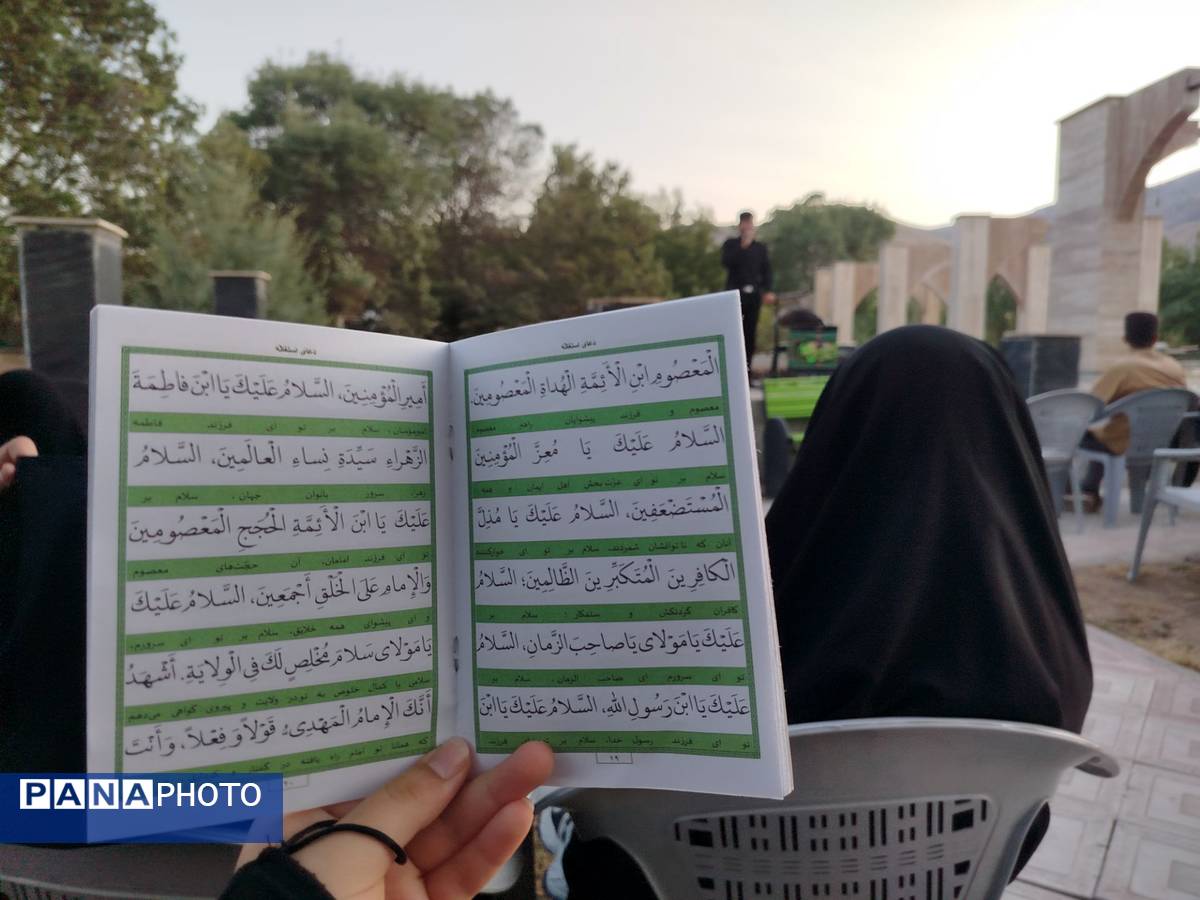 دعای استغاثه
الْمَعْصُومِ ابْنِ الْأَئِمَّةِ الْهُداةِ الْمَعْصُومِينَ،
معصوم و فرزند پیشوایان راهبر معصوم
السَّلامُ عَلَيْكَ يا مُعِزَّ الْمُؤْمِنِينَ
سلام بر تو ای عزت‌بخش اهل ایمان و همه
الْمُسْتَضْعَفِينَ، السَّلامُ عَلَيْكَ يا مُذِلَّ
آنان که ناتوانشان شمردند، سلام بر تو ای خوارکننده
الْكافِرِينَ الْمُتَكَبِّرِينَ الظَّالِمِينَ؛ السَّلامُ
کافران گردنکش و ستمکار؛ سلام بر
عَلَيْكَ يا مَوْلاىَ يا صاحِبَ الزَّمانِ، السَّلامُ
تو ای سرورم ای صاحب الزمان، سلام بر
عَلَيْكَ يَا ابْنَ رَسُولِ اللهِ، السَّلامُ عَلَيْكَ يَا ابْنَ
تو ای فرزند رسول خدا، سلام بر تو ای فرزند
۱۹
دعای استغاثه
أَمِيرِ الْمُؤْمِنِينَ، السَّلامُ عَلَيْكَ يَا ابْنَ فاطِمَةَ
امیرمؤمنان، سلام بر تو ای فرزند فاطمه
الزَّهْراءِ سَيِّدَةِ نِساءِ الْعالَمِينَ، السَّلامُ
زهرا، سرور بانوان جهان، سلام بر
عَلَيْكَ يَا ابْنَ الْأَئِمَّةِ الْحُجَجِ الْمَعْصُومِينَ
تو ای فرزند امامان، آن حجّت‌های معصوم
وَالْإِمامِ عَلَى الْخَلْقِ أَجْمَعِينَ، السَّلامُ عَلَيْكَ
و ای پیشوای همه خلایق، سلام بر تو ای سرورم،
يا مَوْلاىَ سَلامَ مُخْلِصٍ لَكَ فِى الْوِلايَةِ. أَشْهَدُ
سلامی با کمال خلوص به تو در ولایت و پیروی گواهی می‌دهم
أَنَّكَ الْإِمامُ الْمَهْدِىُّ، قَوْلاً وَ فِعْلاً، وَ أَنْتَ
که همانا تو امام راه یافته در
PANAPHOTO